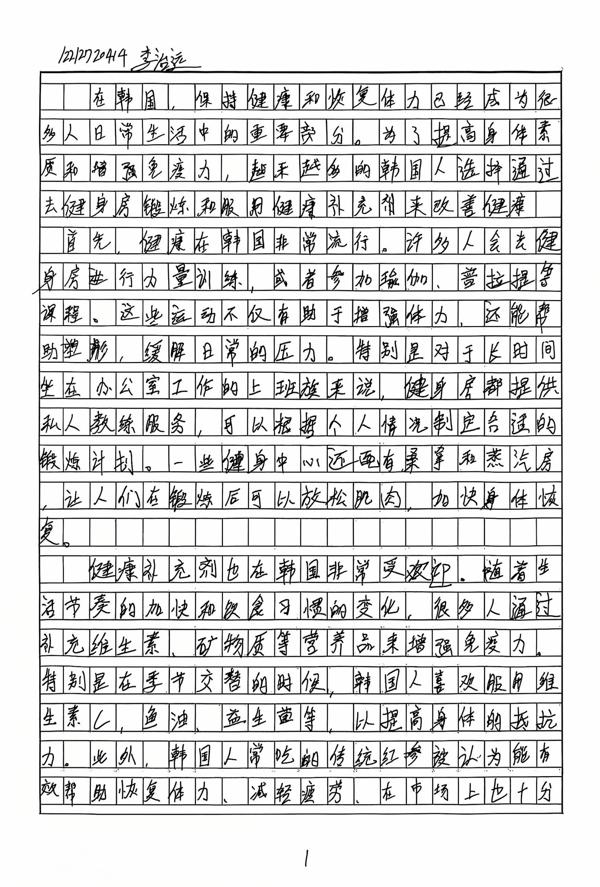 122720414 李治远
在韩国，保持健康和恢复体力已经成为很
多人日常生活中的重要部分。为了提高身体素
质和增强免疫力，越来越多的韩国人选择通过
去健身房锻炼和服用健康补充剂来改善健康
首先，健康在韩国非常流行。许多人会去健
身房进行力量训练，或者参加瑜伽、普拉提等
课程。这些运动不仅有助于增强体力，还能帮
助塑形，缓解日常的压力。特别是对于长时间
坐在办公室工作的上班族来说，健身房都提供
私人教练服务，可以根据个人情况制定合适的
锻炼计划。一些健身中心还配有桑拿和蒸汽房
，让人们在锻炼后可以放松肌肉，加快身体恢
复。
健康补充剂也在韩国非常受欢迎。随着生
活节奏的加快和饮食习惯的变化，很多人通过
补充维生素、矿物质等营养品来增强免疫力。
特别是在季节交替的时候，韩国人喜欢服用维
生素C，鱼油、益生菌等，以提高身体的抵抗
力。此外，韩国人常吃的传统红参被认为能有
效帮助恢复体力、减轻疲劳、在市场上也十分
1